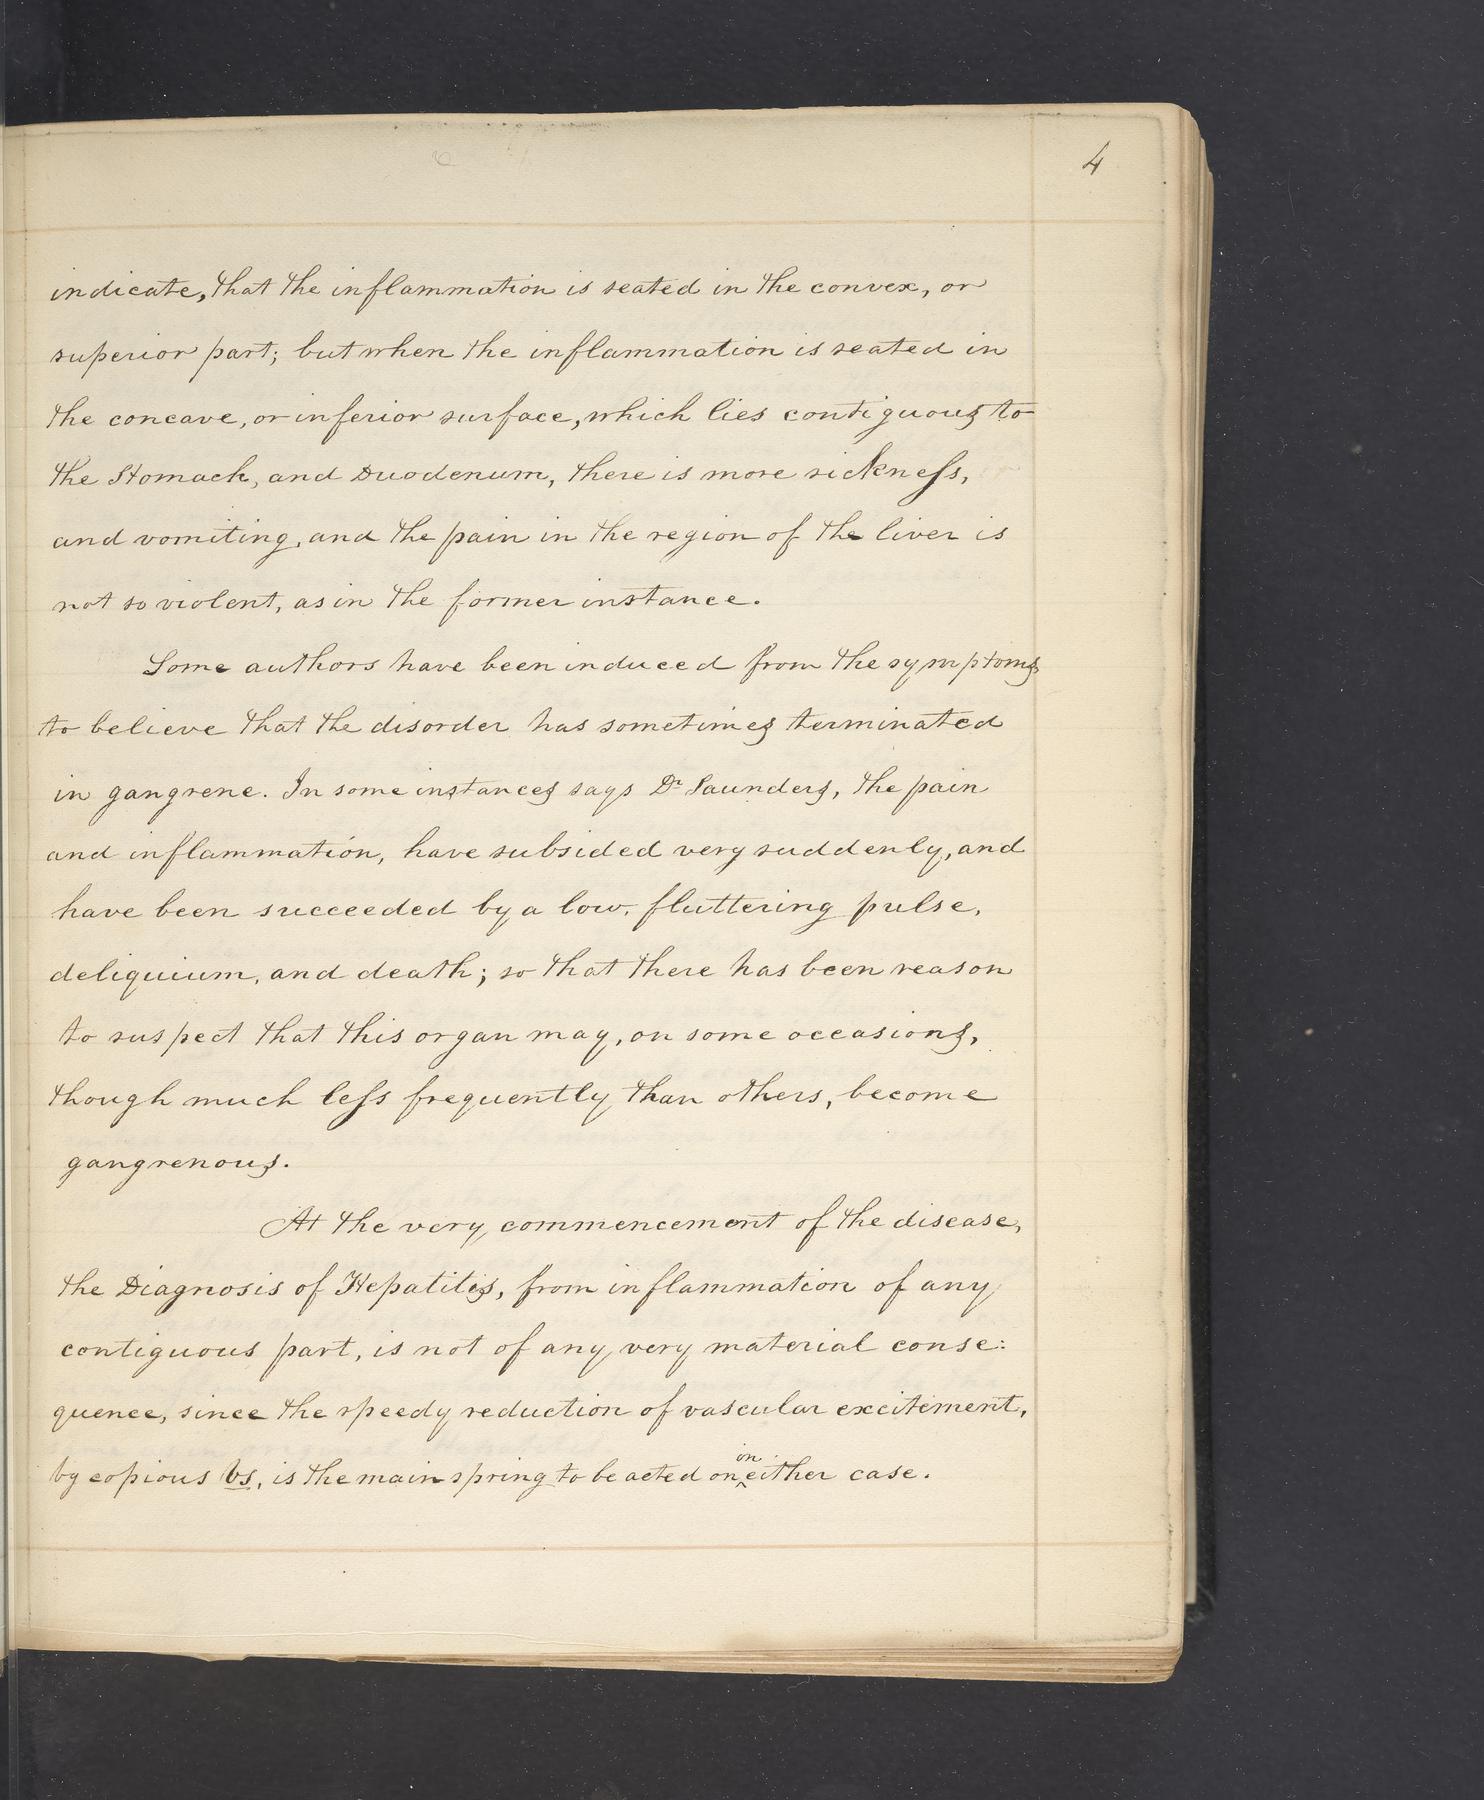 4
indicate, that the inflammation is seated in the convex, or
superior part; but when the inflammation is seated in
the concave, or inferior surface, which lies contiguous to
the Stomach, and Duodenum, there is more sickneſs,
and vomiting, and the pain in the region of the liver is
not so violent, as in the former instance.
Some authors have been induced from the symptoms
to believe that the disorder has sometimes terminated
in gangrene. In some instances says Dr Saunders, the pain
and inflammation, have subsided very suddenly, and
have been succeeded by a low, fluttering pulse,
deliquium, and death; so that there has been reason
to suspect that this organ may, on some occasions,
though much leſs frequently than others, become
gangrenous.
At the very commencement of the disease,
the Diagnosis of Hepatitis, from inflammation of any
contiguous part, is not of any very material conse:
quence, since the speedy reduction of vascular excitement,
by copious vs, is the main spring to be acted on in either case.